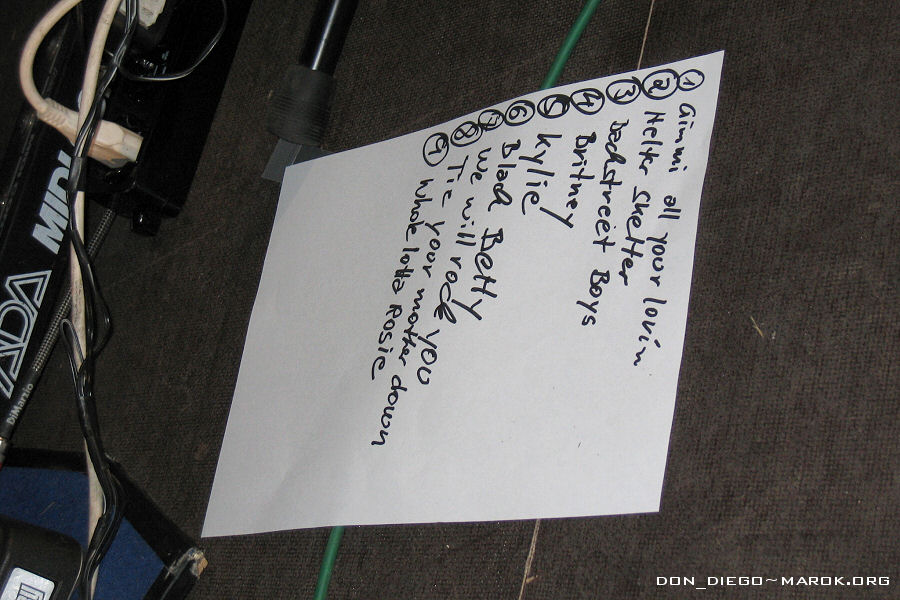 ① Gimmi all your lovin
② Helter Skelter
③ Backstreet Boys
④ Britney
⑤ Kylie
⑥ Black Betty
⑦ We will rock you
⑧ Tie your mother down
⑨ Whole lotta Rosie
ADA MIDI
DiMarzio
DON_DIEGO~MAROK.ORG